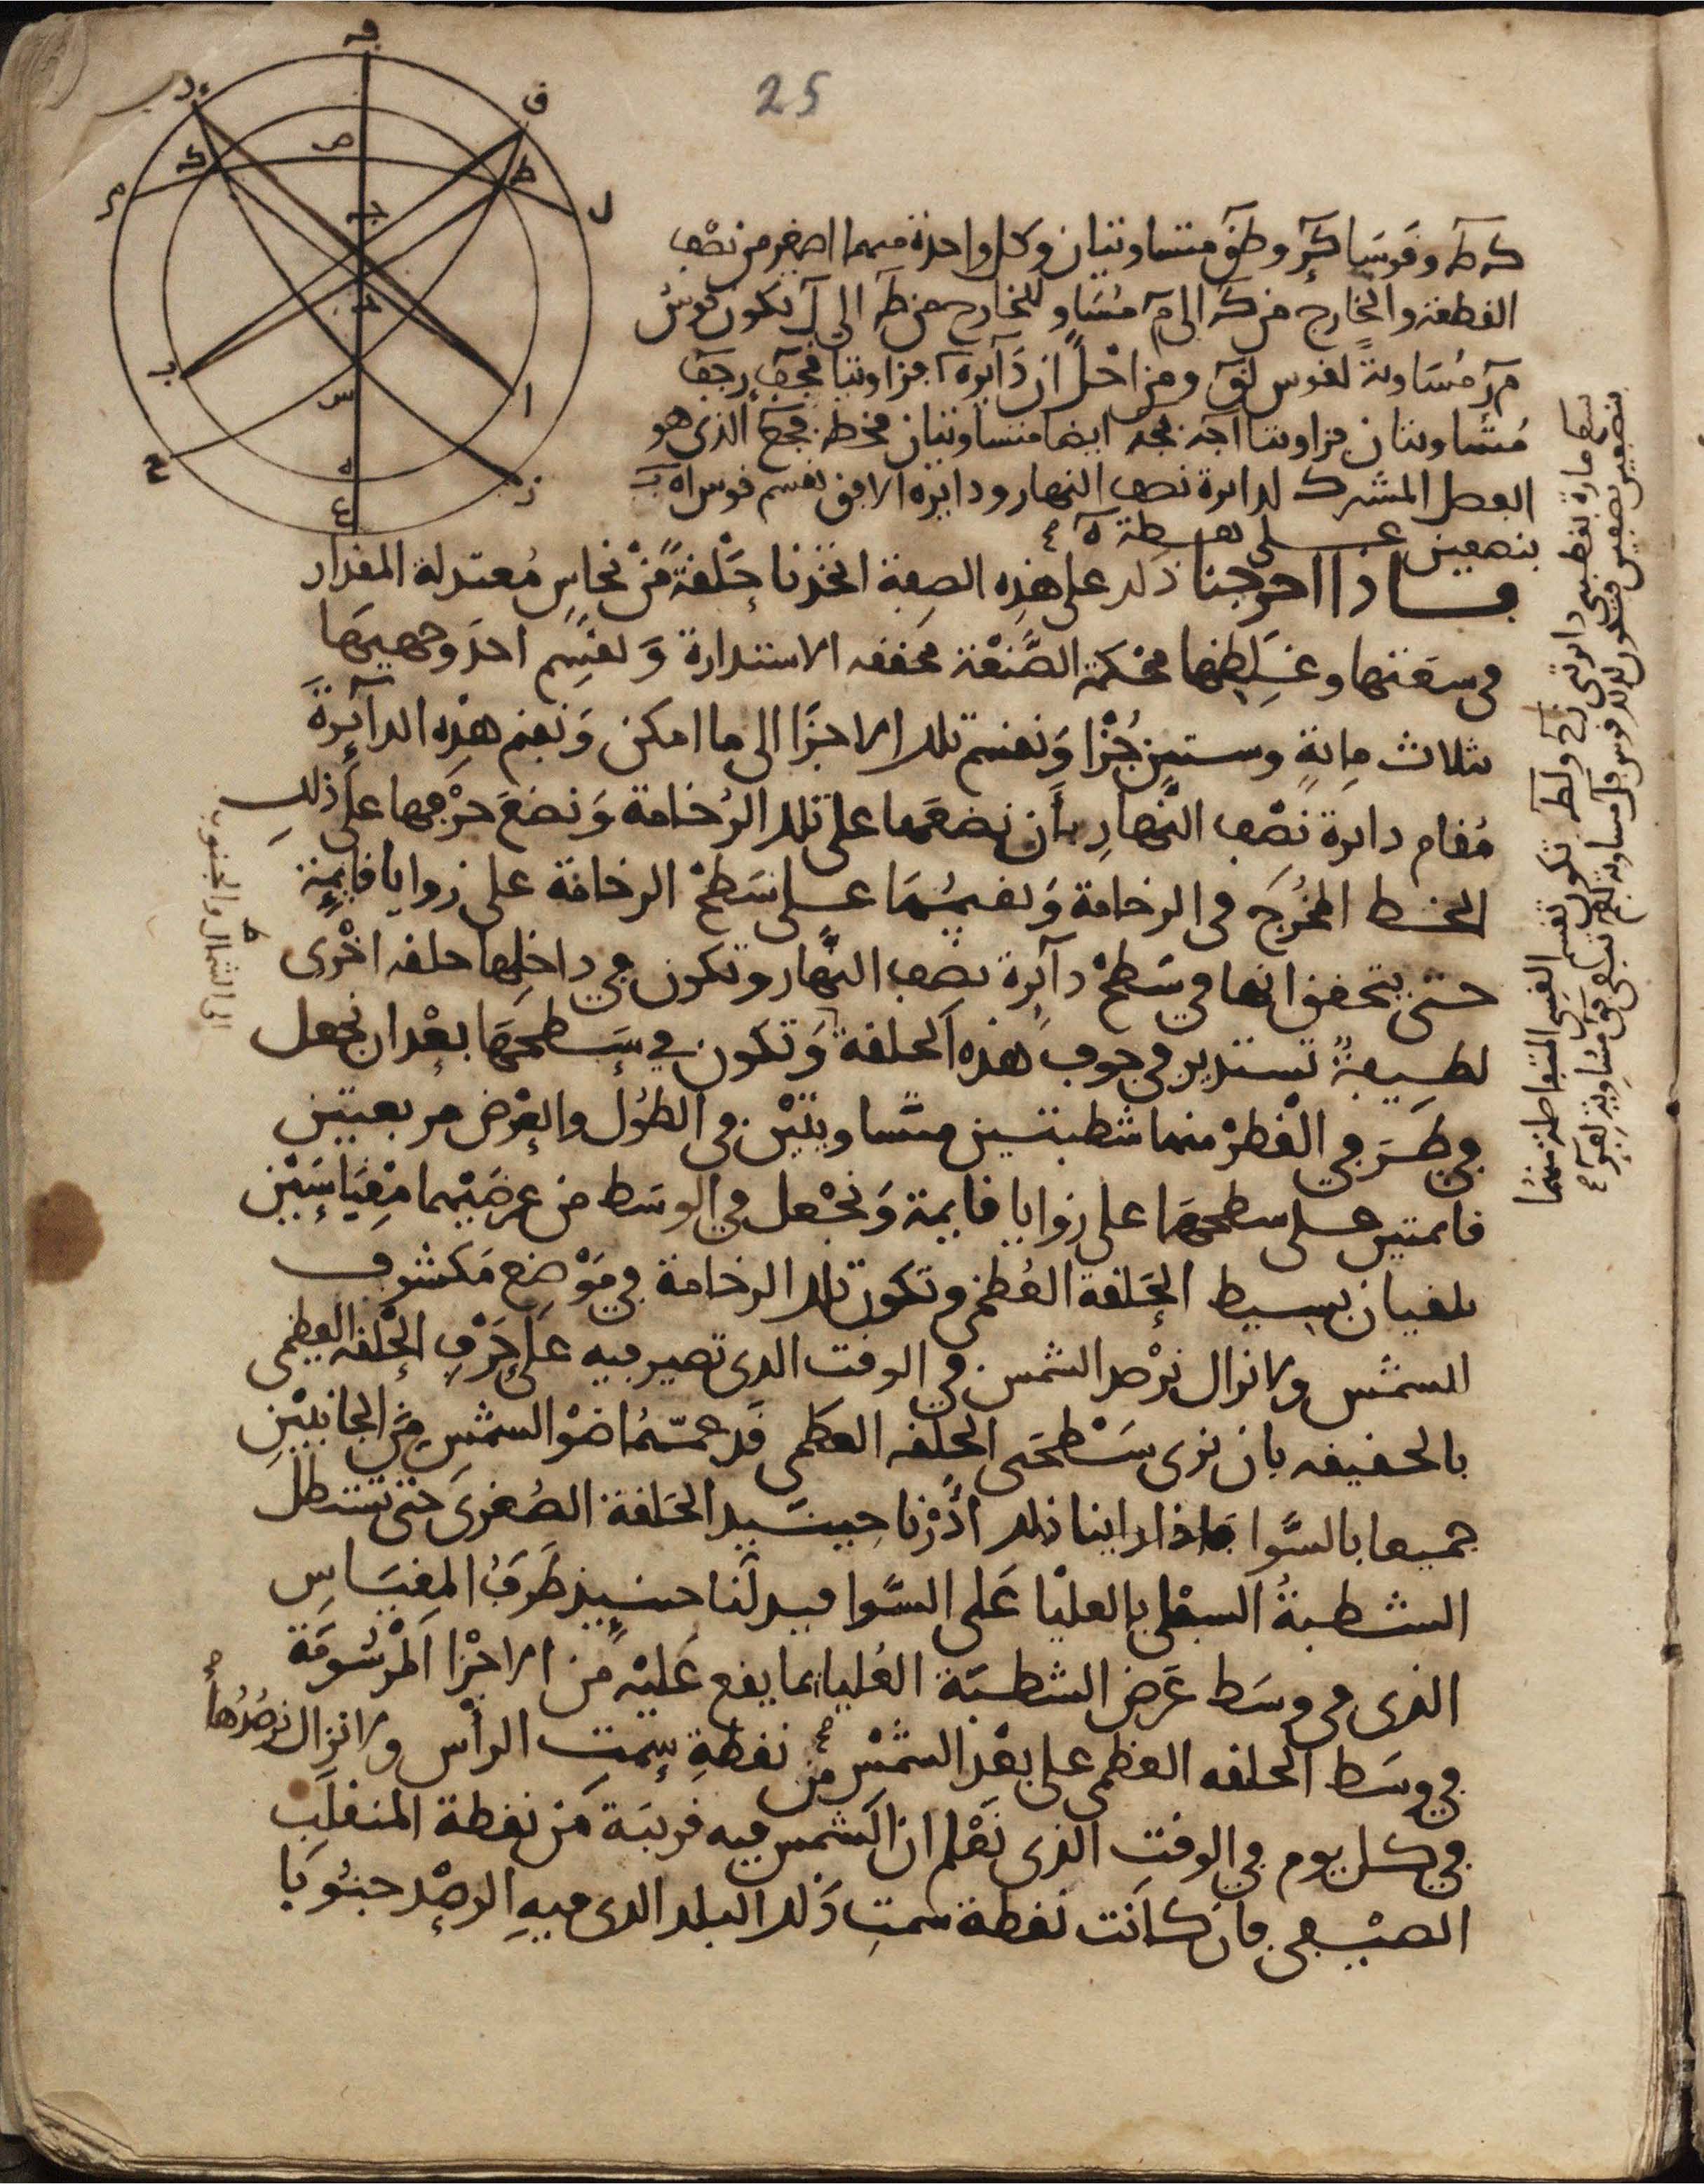 25
كـ طـ وقوسا كر وطق متساويتان وكل واحدة منهما اصغر من نصف
القطعة والخارج من كـ الى م مساو للخارج من طـ الى ل تكون قوس
م ر مساوية لقوس لق ومن اجل ان
متساويتان فزاويتا اجه بجه ايضا متساويتان فخط فجع الذي هو
الفصل المشترك لدايرة نصف النهار ودايرة الافق يقسم قوس اه ب
بنصفين على نقطة ه
فاذا اخرجنا ذلك على هذه الصفة اتخذنا حَلْقةً من نحاسٍ مُعتدلة المقدار
في سعتها وغلظها محكمة الصَّنْعَة محققه الاستدارة وَنقسِم احدَ وجهيها
ثلاث مايةٍ وستين جُزْا وَنقسم تلك الاجزَا الى ما امكن وَنقيم هذه الدآيرةَ
مُقام دايرة نصْف النّهارِ بأن نضعَها على تلك الرُخامة وَنضعَ حرْفها على ذلكِ
الخط المُخْرَج في الرخامة وَنقيمُها على سَطحْ الرخامة على زوايا قايمةٍ
حتى يتحقق انها في سَطحْ دآيرة نصْف النّهار وتكون في داخلها حلقه اخْرى
لطيفةً تستدير في جوف هذه الحلقة وَتكون في سَطحهَا بعْد ان نجعل
في طرَفي القطرْ منها شظيتين متساويتَيْن في الطوُل والعَرْض مربعتين
قايمتين على سطحهَا على زوايا قايمة وَنجْعل في الوسَط من عرضَيْهما مِقيَاسَيْن
يلقيان بسيط الحَلقة العُظمى وتكون تلك الرخامة في مَوْضع مَكشوف
للشمْس ولا نزال نرْصد الشمس في الوقت الذي تصير فيه على حَرْفِ الحْلقه العظمى
بالحقيقه بان نرى سَطحَى الحلقه العظمى قد عمّهُما ضوْ الشمْسِ من الجانبَيْنِ
جميعا بالسّوا فاذا راينا ذلك ادَرْنا حِينيذ الحَلقة الصُغرىَ حتى تستظل
الشظيةُ السفلى بالعليْا عَلى السّوا فيدلنا حينيذ طرَفُ المقيَاسِ
الذى في وسَط عَرض الشظيَة العُليا بما يقع عَليْه من الاجزْا المرْسُومَة
في وسَط الحلقه العظمى على بعْد الشمْسْ من نقطةِ سمتِ الرأس ولا نزال نرصُدُها
في كل يوم في الوقتِ الذى نعْلم ان الشمس فيه قريبَة من نقطة المنقلَب
الصيْفي فان كانت نقطة سمتِ ذلك البلد الذى فيهِ الرصْد جنوُبَا
الى الشمال والجنوب